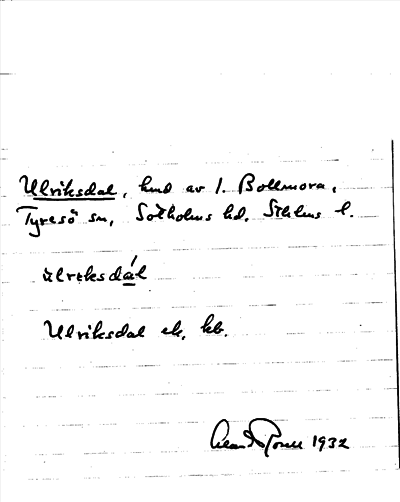 Ulriksdal, hmd av 1. Bollmora,
Tyresö sn, Sotholms hd, Sthlms l.
ulriksdál
Ulriksdal ek. kb.
1932